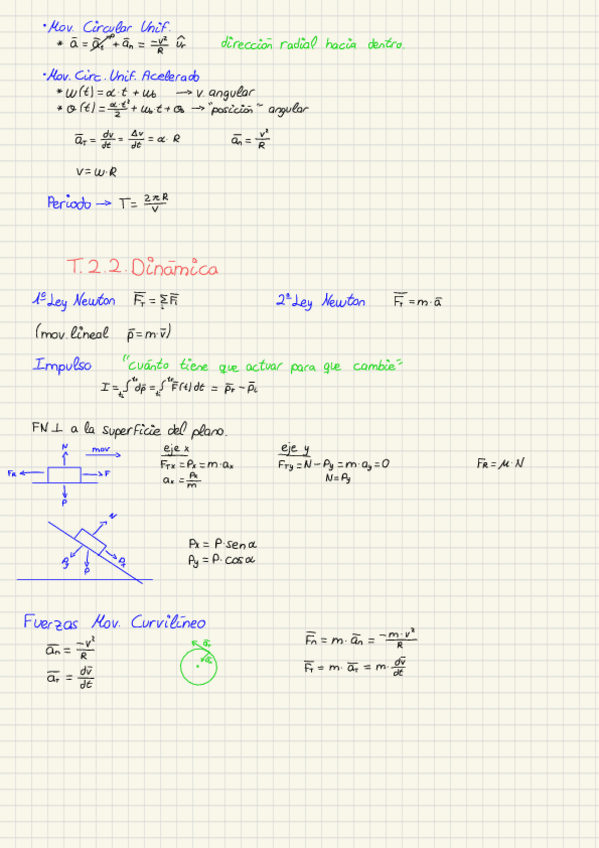 · Mov. Circular Unif.
* ā = ā_T⁰ + ā_n = -v²/R û_r   dirección radial hacia dentro.
· Mov. Circ. Unif. Acelerado
* ω(t) = α · t + ω₀ → v. angular
* θ(t) = α·t²/2 + ω₀ · t + θ₀ → "posición" angular
ā_T = dv/dt = Δv/dt = α · R   ā_n = v²/R
v = ω · R
Periodo → T = 2πR/v
T.2.2. Dinámica
1ª Ley Newton   F̄_T = Σ_i F̄_i   2ª Ley Newton   F̄_T = m · ā
(mov. lineal   p̄ = m · v̄)
Impulso   "cuánto tiene que actuar para que cambie"
I = ∫ dp̄ = ∫ F̄(t) dt = p̄_f - p̄_i
FN ⊥ a la superficie del plano.
N   mov   eje x   eje y
F_R   F   F_Tx = P_x = m · a_x   F_Ty = N - P_y = m · a_y = 0   F̄_R = μ · N
P   a_x = P_x/m   N = P_y
N
P_y   P   P_x   P_x = P · sen α
P_y = P · cos α
Fuerzas Mov. Curvilíneo
ā_n = -v²/R   F̄_n = m · ā_n = -m · v²/R
ā_T = dv̄/dt   F̄_T = m · ā_T = m · dv̄/dt